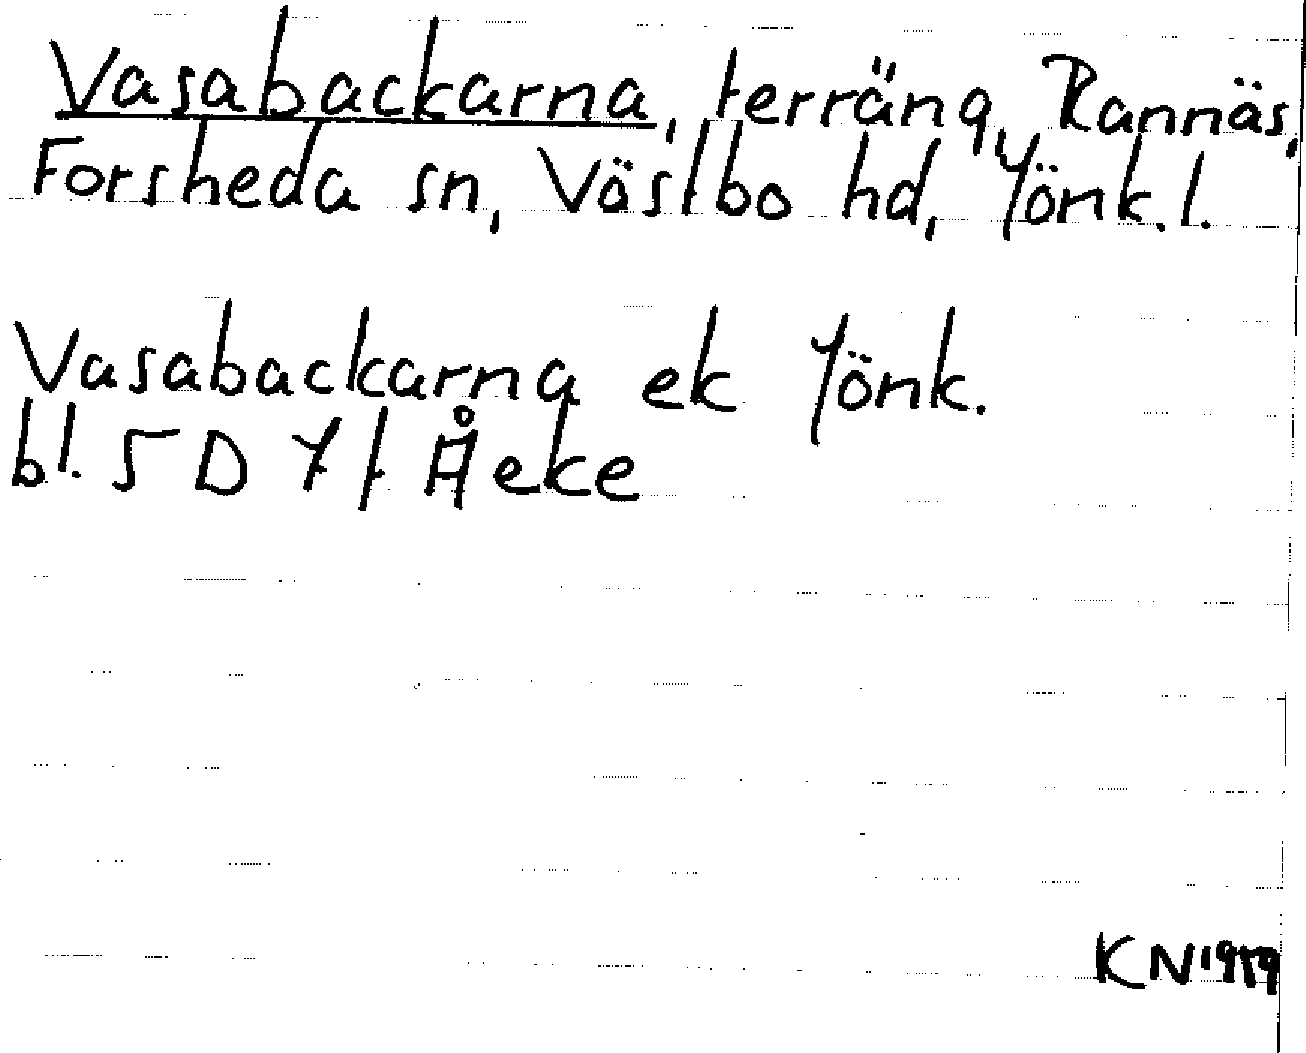 Vasabackarna, terräng, Rannäs,
Forsheda sn, Västbo hd, Jönk. l.
Vasabackarna ek Jönk.
bl. 5 D 7 f Åeke
KN 1959